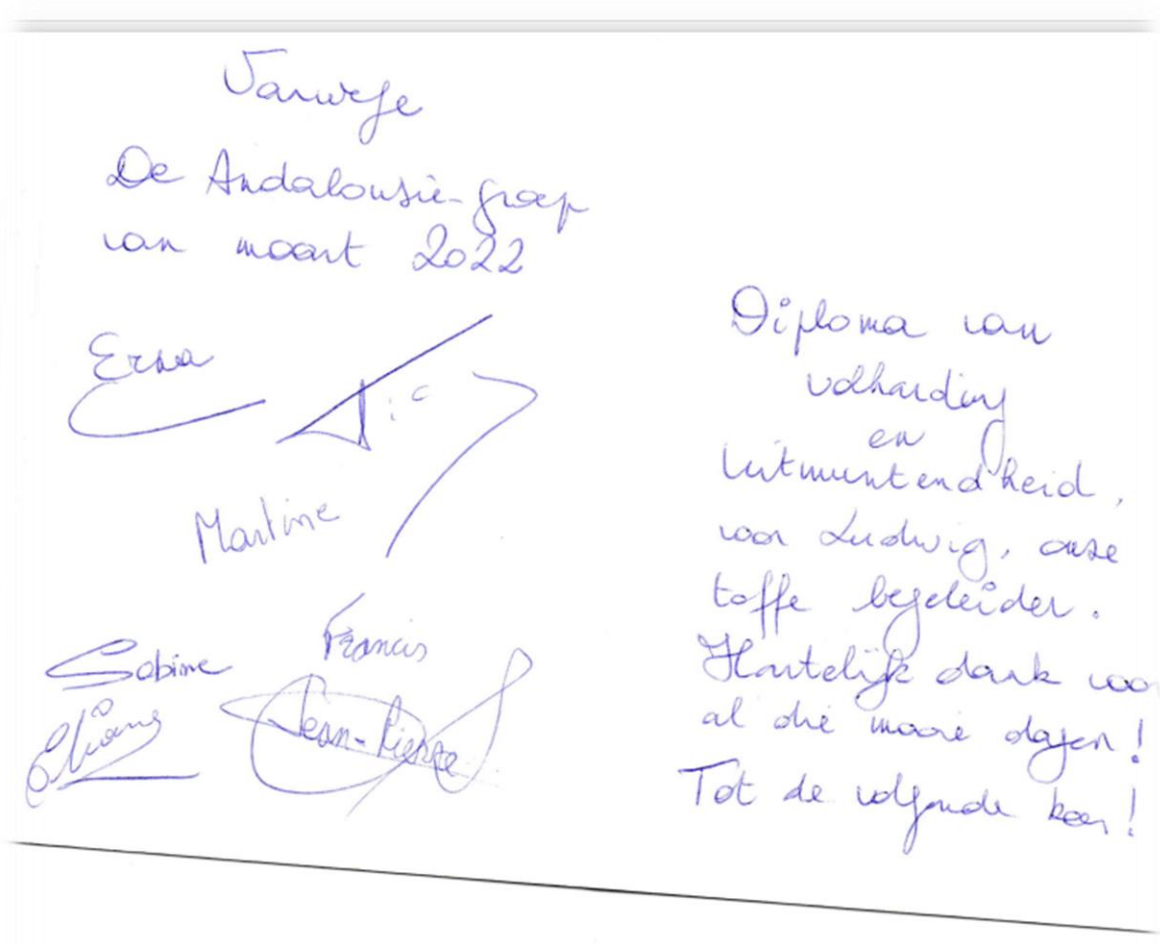 Vanwege
De Andalousie-groep
van maart 2022
Erna
Martine
Francis
Sabine
Jean-Pierre
Diploma van
volharding
en
uitmuntendheid,
voor Ludwig, onze
toffe begeleider.
Hartelijk dank voo
al die mooie dagen!
Tot de volgende keer!